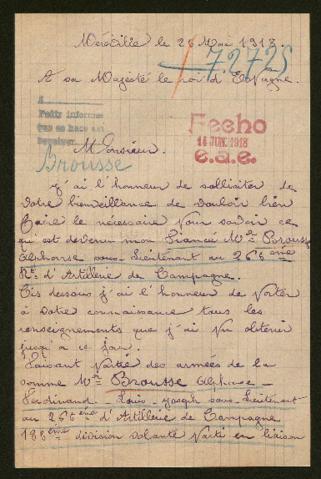 Méréville le 26 Mai 1918.
+72725
A sa Majesté le roi d'Espagne.
A
Pedir informes
que se hace
Fecho
14 JUN. 1918
e.a.e.
Monsieur.
Brousse
j'ai l'honneur de solliciter de
votre bienveillance de vouloir bien
faire le nécessaire pour savoir ce
qu'est devenu mon Fiancé Mr Brousse
Alphonse sous-Lieutenant au 266ème
Rt d'Artillerie de Campagne.
Cis dessous j'ai l'honneur de porter
à votre connaissance tous les
renseignements que j'ai pu obtenir
jusqu'a ce jour.
Faisant partie des armées de la
somme Mr Brousse Alphonse-
Ferdinand-Louis-Joseph sous-Lieutenant
au 266ème d'Artillerie de Campagne
188ème division volante parti en liaison